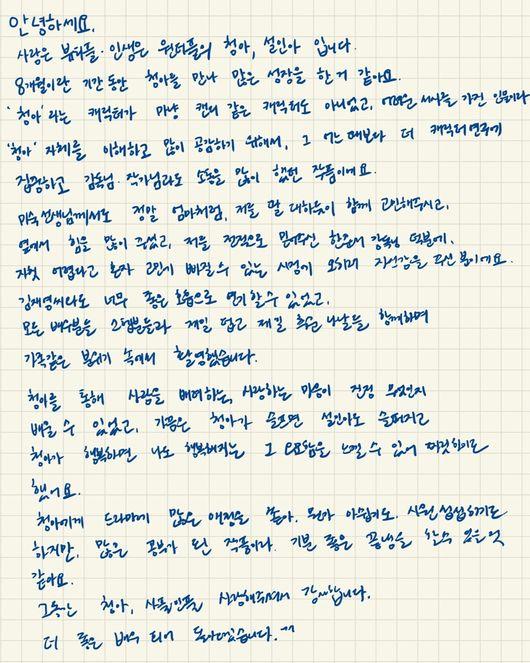 안녕하세요.
사랑은 뷰티풀·인생은 원더풀의 청아, 설인아 입니다.
8개월이란 기간동안 청아를 만나 많은 성장을 한거 같아요.
'청아'라는 캐릭터가 마냥 캔디 같은 캐릭터도 아니었고, 어려운 서사를 가진 인물이라
'청아' 자체를 이해하고 많이 공감하기 위해서, 그 어느때보다 더 캐릭터연구에
집중하고 감독님·작가님과도 소통을 많이 했던 작품이에요.
미숙선생님께서도 정말 엄마처럼, 저를 딸 대하듯이 함께 고민해주시고,
옆에서 힘을 많이 주셨고, 저를 전적으로 믿어주신 한준서 감독님 덕분에,
자칫 어렵다고 혼자 고민에 빠질수 있는 시점에 오히려 자신감을 주신 분이에요.
김재영씨와도 너무 좋은 호흡으로 연기할수 있었고,
모든 배우분들 스탭분들과 제일 덥고 제일 추운 나날들 함께하며
가족같은 분위기 속에서 촬영했습니다.
청아를 통해 사람을 배려하는, 사랑하는 마음이 진정 무엇인지
배울 수 있었고, 가끔은 청아가 슬프면 설인아도 슬퍼지고
청아가 행복하면 나도 행복해지는 그 오묘함을 느낄 수 있어 짜릿하기도
했어요.
청아에게 드라마에 많은 애정을 쏟아. 뭔가 아쉽기도. 시원섭섭하기도
하지만, 많은 공부가 된 작품이라 기분 좋은 끝맺음 할수 있을 것
같아요.
그동안 청아, 사풀인풀 사랑해주셔서 감사합니다.
더 좋은 배우 되어 돌아오겠습니다.^^